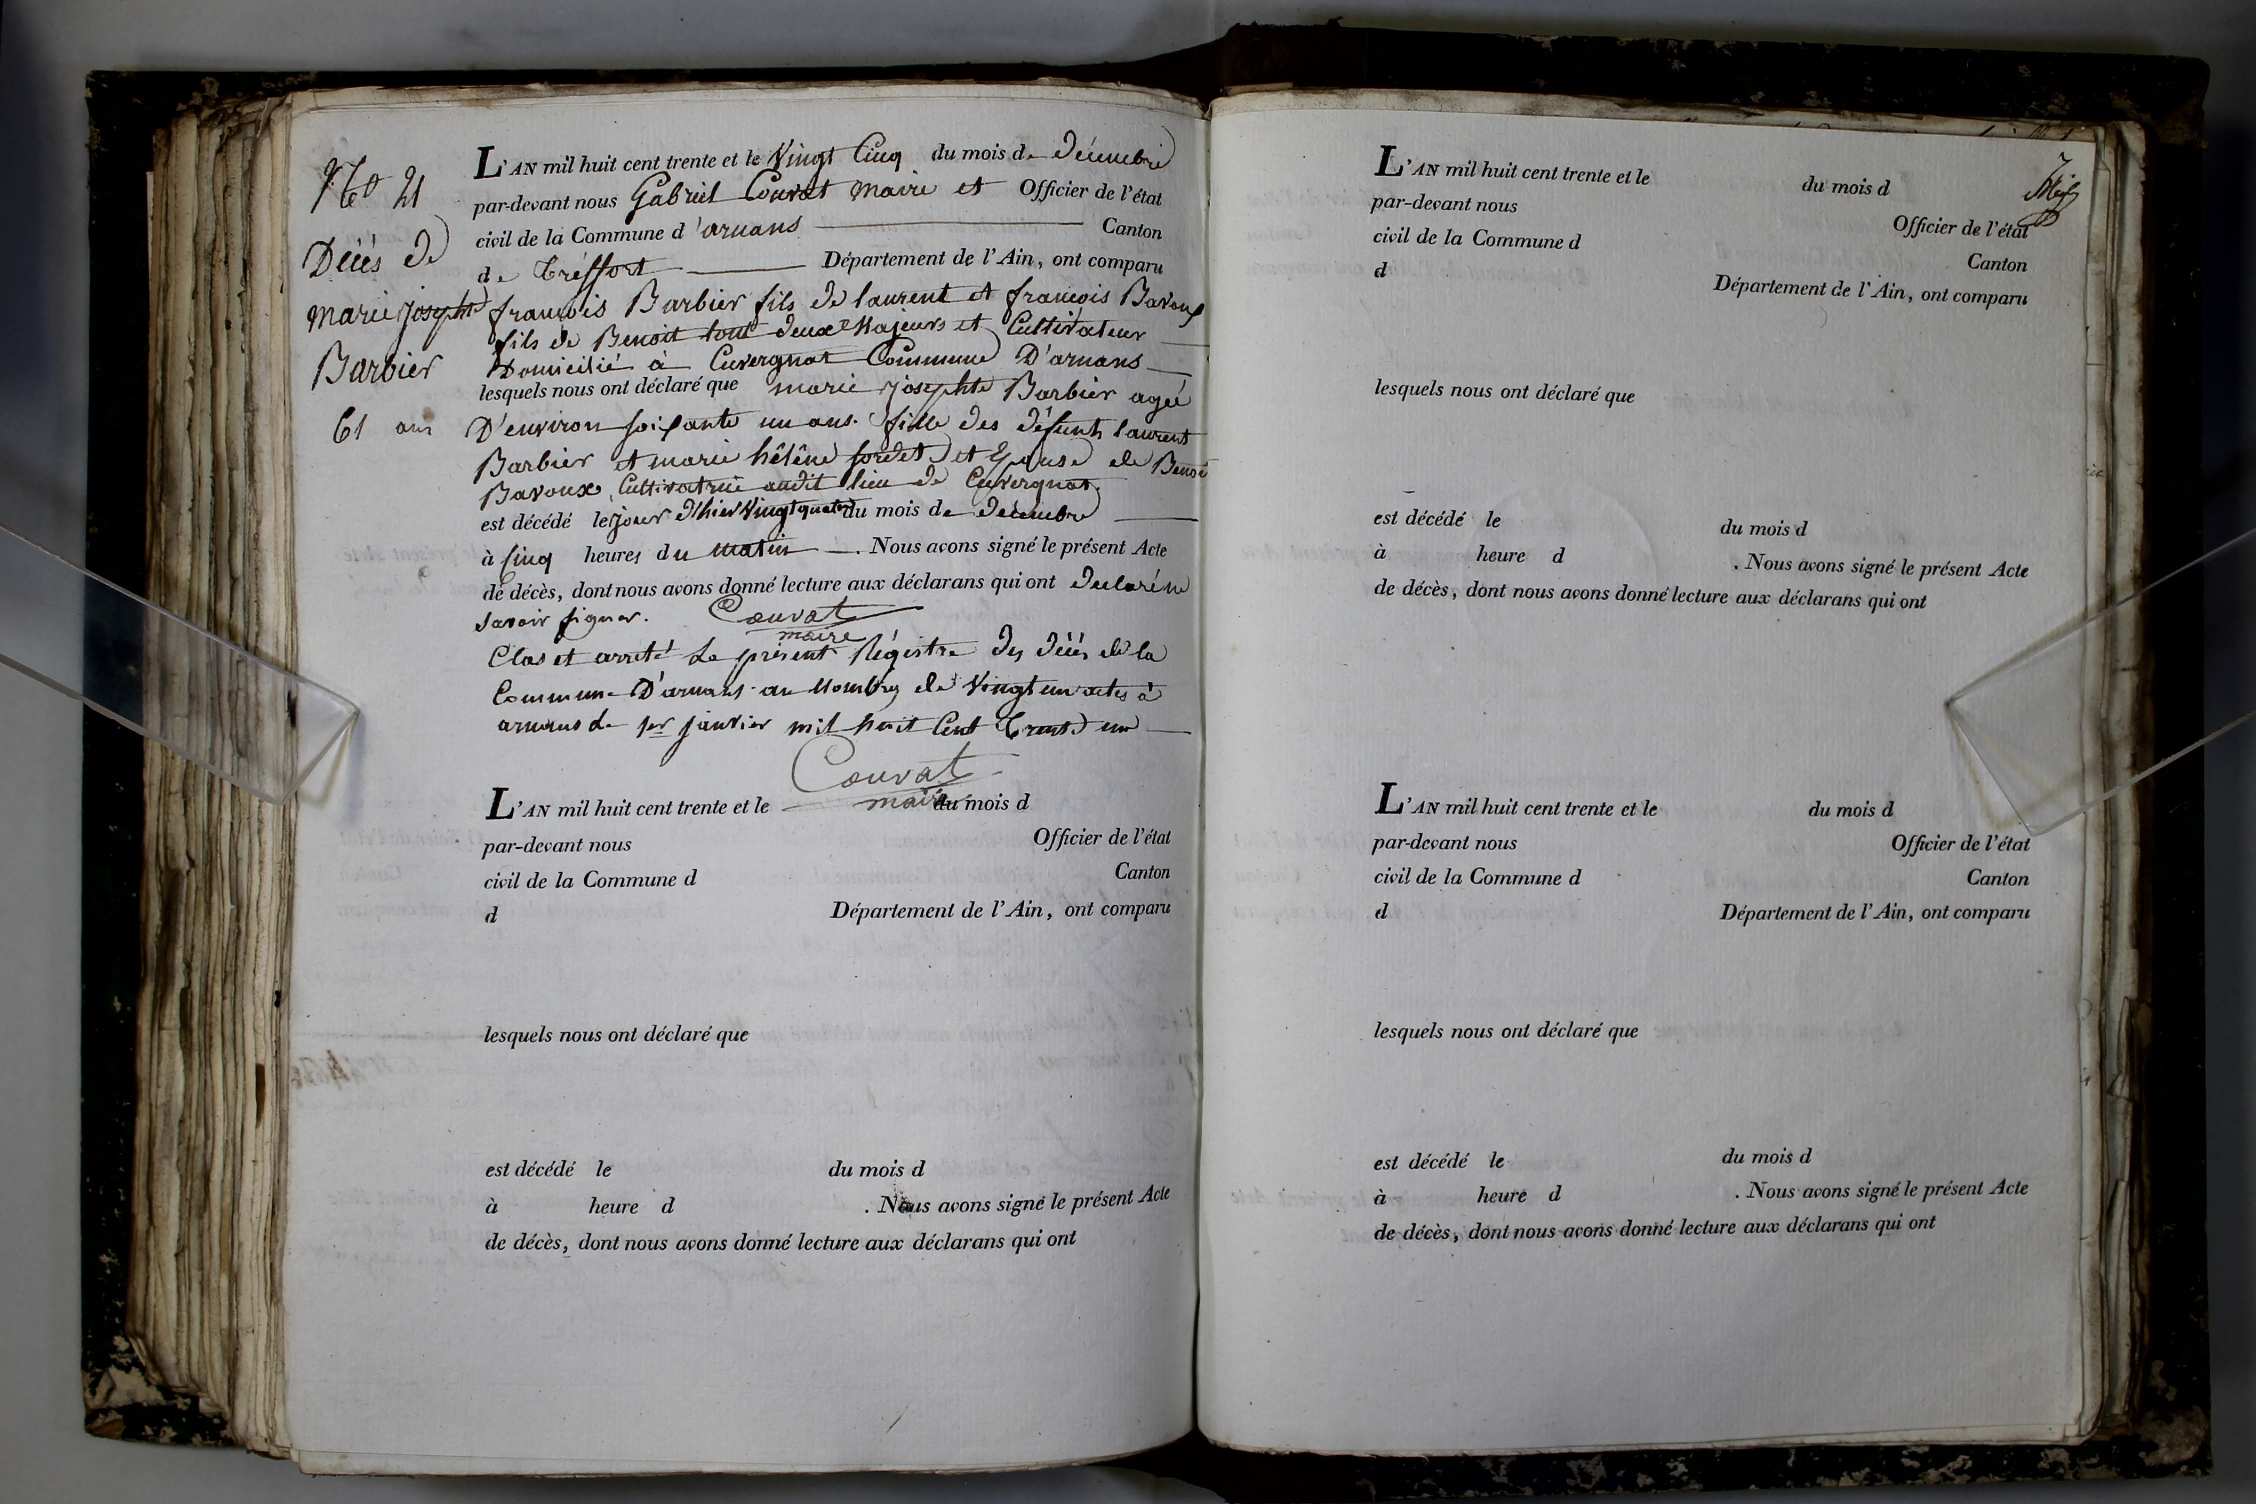 No 21
Décés de
marie josephte
Barbier
61 ans
L'AN mil huit cent trente et le Vingt Cinq du mois de décembre
par-devant nous Gabriel Couvat maire et Officier de l'état
civil de la Commune d'arnans Canton
de Tréffort Département de l'Ain, ont comparu
françois Barbier fils de laurent et françois Bavoux
fils de Benoit tout deux Majeurs et Cultivateur
Domicilié à Cuvergnat Commune D'arnans
lesquels nous ont déclaré que marie josephte Barbier agée
D'environ soixante un ans. fille des défunts laurent
Barbier et marie hélêne sordet et Epouse de Benoi
Bavoux, Cultivatrice audit lieu de Cuvergnat.
est décédé le jour d'hier Vingt quatre du mois de décembre
à cinq heures du matin. Nous avons signé le présent Acte
de décès, dont nous avons donné lecture aux déclarans qui ont declaré ne
savoir signer. Couvat
maire
Clos et arreté Le présent Régistre des décés de la
Commune D'arnans au Nombre de Vingt un actes à
arnans Le 1er janvier mil huit Cent Trente un
Couvat
maire
L'AN mil huit cent trente et le du mois d
par-devant nous Officier de l'état
civil de la Commune d Canton
d Département de l'Ain, ont comparu
lesquels nous ont déclaré que
est décédé le du mois d
à heure d . Nous avons signé le présent Acte
de décès, dont nous avons donné lecture aux déclarans qui ont
L'AN mil huit cent trente et le du mois d
par-devant nous Officier de l'état
civil de la Commune d Canton
d Département de l'Ain, ont comparu
lesquels nous ont déclaré que
est décédé le du mois d
à heure d . Nous avons signé le présent Acte
de décès, dont nous avons donné lecture aux déclarans qui ont
L'AN mil huit cent trente et le du mois d
par-devant nous Officier de l'état
civil de la Commune d Canton
d Département de l'Ain, ont comparu
lesquels nous ont déclaré que
est décédé le du mois d
à heure d . Nous avons signé le présent Acte
de décès, dont nous avons donné lecture aux déclarans qui ont